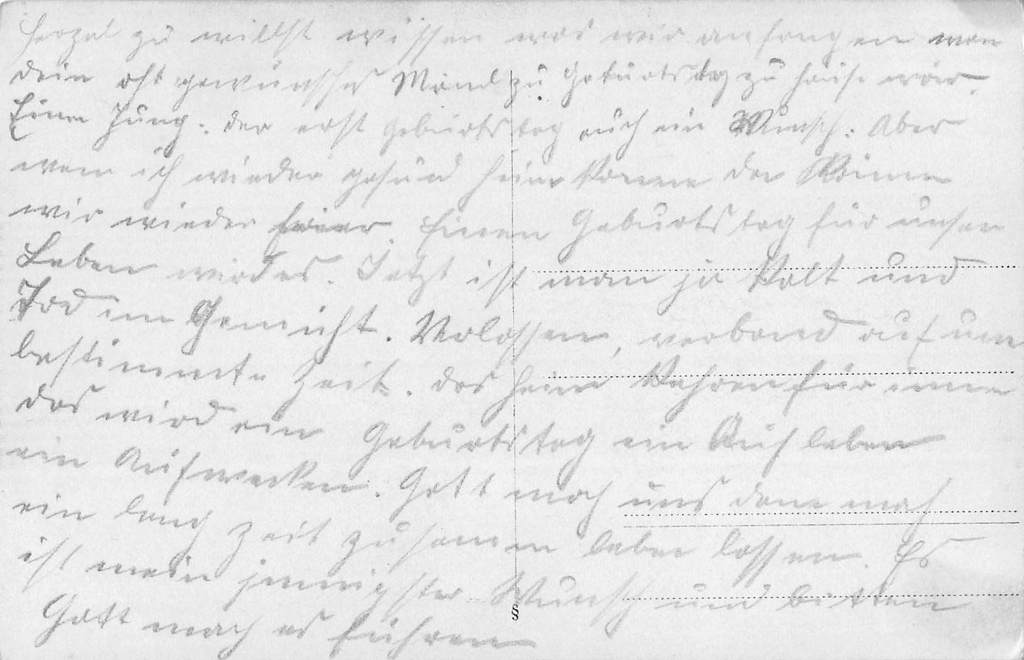 Herzel zu willst wissen was wir anfangen wan
dein oft gewünschter zu Geburtstag zu hause wär.
Einen Jung. der erst Geburtstag auch ein Wunsch. Aber
wenn ich wieder gesund heim komme dan können
wir wieder feier. Einen Geburtstag für unser
Leben wird es. Jetzt ist man ja kalt und
Tod im Gemüht. Verlassen, verband auf um
bestimmte Zeit. das heim kehren für immer
das wird ein Geburtstag ein Aufleben
ein Aufwecken. Gott mach uns dan noch
ein lang Zeit zusamen leben lassen. Es
ist mein innigster Wunsch und bitten
Gott mach es führen